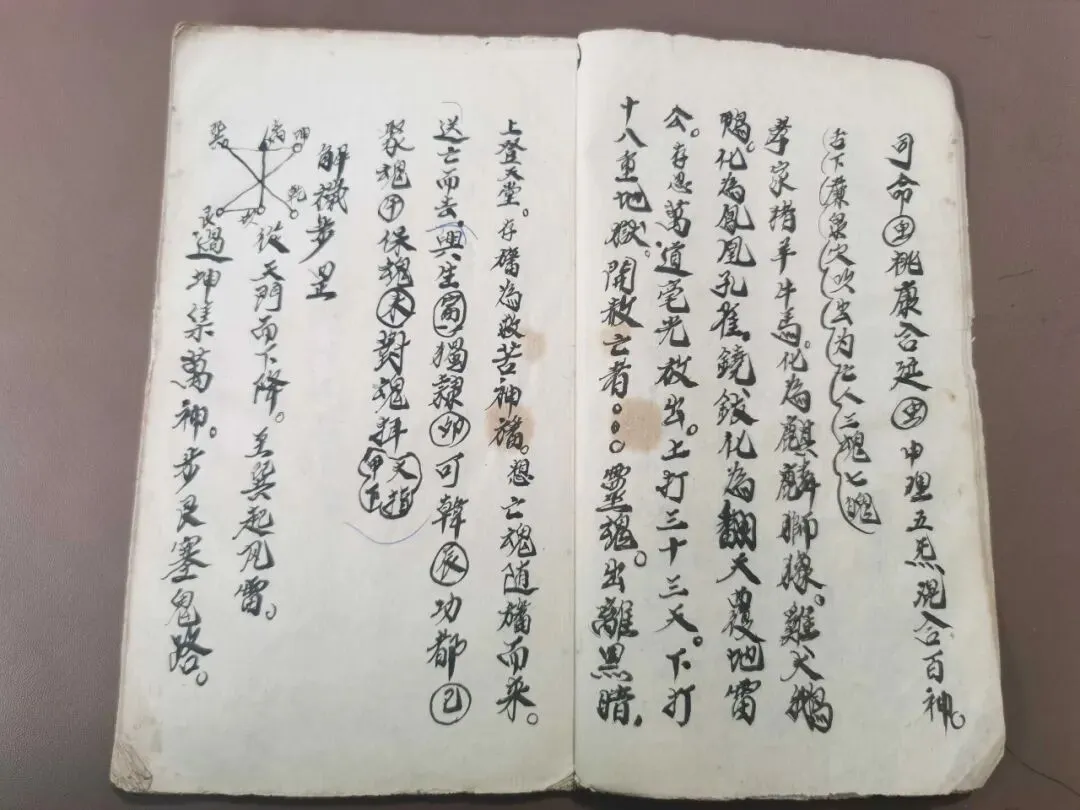 司命丑桃康合延丑中理五炁混合百神。
舌下廉泉穴吹出为亡人三魂七魄
孝家猪羊牛馬。化為麒麟獅𧰼。雞犬鵝
鴨。化為鳳凰孔雀。鐃鈸化為翻天覆地雷
公。存思萬道毫光放出。上打三十三天。下打
十八重地獄。開赦亡者。靈魂出離黑暗。
上登天堂。存旛為救苦神旛。想亡魂随旛而來。
送亡而去。興生寅獨隸卯可韓辰功都巳
聚魂甲保魂未對魂拜大指甲下
解穢步罡
巽 离 坤
艮 坎 乾
從天門而下降。至巽起风雷。
過坤集萬神。步艮塞鬼路。